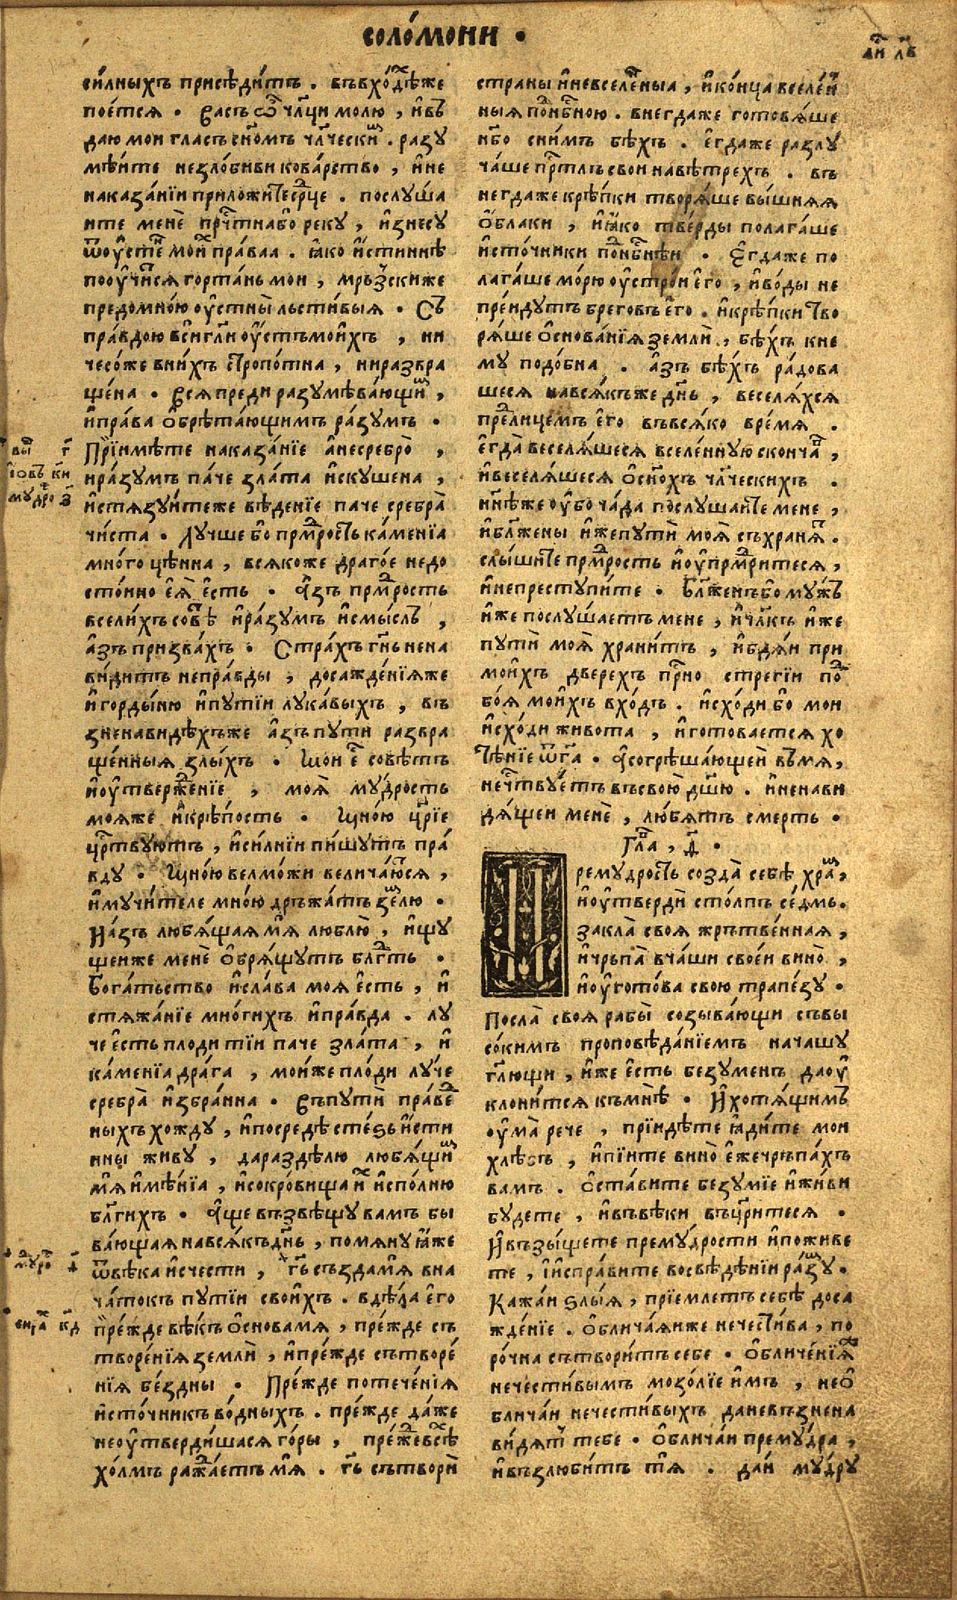 соло́мони .
си́лныхъ присѣди́тъ . въвхо́дѣⷯже
пое́тся . Васъ ѿ чл҃ци молю , и҆въз
даю мои гласъ сн҃омъ чл҃чески . разу
мѣ́ите незло́биви кова́рство , и҆не
наказа́нїи приложи́те ср҃це . послу́ша
ите менѐ пр҃тнаѡ҆бо реку , и҆изнесу
ѿоу҆сте́нъ мои́хъ пра́ваа . ꙗ҆ко и҆́стиннѣ
пооу҆чи́тся горта́нь мои , мръ́зскиже
предомно́ю оу҆стны̀ льсти́выя . Съ
пра́вдою всѝ гл҃ли оу҆́стъмои́хъ , ни
чесо́же вни́хъ стропо́тна , ниразвра
ще́на . Вся преди разумѣва́ющи ,
и҆права ѡ҆брѣта́ющимъ ра́зумъ .
Прїимѣ́те наказа́нїе а҆несребро̀ ,
и҆ра́зумъ па́че зла́та и҆скуше́на ,
и҆стязу́итеже вѣ́денїе паче сребра̀
чи́ста . Лу́чше бо прм҃рость ка́менїа
мно́го цѣ́нна , вся́коже драго́е недо
сто́ино е҆я̀ е҆́сть . А҆́зъ прм҃рость
всели́хъ совѣ́тъ и҆ра́зумъ и҆смы́слъ ,
а҆́зъ призва́хъ . Стра́хъ гн҃ь нена
ви́дитъ непра́вды , досажде́нїяже
и҆ горды́ню и҆пути́и лука́выхъ , въ
зненави́дѣхъже а҆́зъ пути́ развра
ще́нныя злы́хъ . Мо́и е҆ сове́тъ
и҆оу҆твержде́нїе , моя̀ му́дрость
мо́яже и҆ крѣ́пость . Мно́ю цр҃їе
цр҃твуютъ , и҆си́лнїи пи́шутъ пра́
вду . Мно́ю велмо́жи велича́ются ,
и҆мучи́теле мно́ю дръжа́тъ зе́млю .
И҆а҆́зъ любя́щая мя̀ люблю̀ , и҆щу
щеиже менѐ ѡ҆бря́щутъ бл҃гть .
Бога́тьство и҆сла́ва моя̀ е҆́сть , и҆
стяжа́нїе мно́гихъ и҆пра́вда . лу
че е҆сть плоди́ тїи паче зла́та , и҆
ка́менїа дра́га , мои́же пло́ди лу́че
сребра̀ и҆збра́нна . Въпути́ пра́ве
ныхъ хожду , и҆посредѣ̀ сте́зь и҆́сти
нны живу , даразде́лю любя́щи
мя̀ и҆мѣ́нїа , и҆сокро́вища и҆хъ и҆спо́лню
бл҃гихъ . А҆́ще възвѣщу́ вамъ бы
ва́ющая нався́къ дн҃ь , помяну́ ꙗ҆́же
ѿвѣ́ка и҆счести , гь҃ създа́мя вна
ча́токъ пути́и свои́хъ . вдѣ́ла е҆го
пре́жде вѣ́къ ѡ҆снова́мя , пре́жде съ
творе́нїя землѝ , и҆пре́жде сътворе́
нїя бе́здны . Пре́жде потече́нїя
и҆сто́чникъ во́дныхъ . пре́жде да́же
неоу҆тверди́шася го́ры , пре́жде всѣ́хъ
хо́лмъ ражда́етъ мя̀ . гь҃ сътворѝ
страны и҆невселе́ныа , и҆ко́нца вселе́н
ныя под нб҃ною . внегда́же гото́вяше
нб҃о сни́мъ бѣ́хъ . е҆гда́же разлу
ча́ше пр҃тлъ свои́ навѣ́трехъ . въ
негда́же крѣ́пки творя́ше вы́шняя
ѡ҆́блаки , и҆ꙗ҆́ко тве́рды полага́ше
и҆сто́чники под нб҃нѣи . Е҆гда́же по
лага́ше мо́рю оу҆строи е҆го̀ , и҆во́ды не
пре́идутъ брего́въ е҆го̀ . и҆крѣ́пки тво
ря́ше ѡ҆снова́нїя землѝ , бѣ́хъ кне
му подо́бна . а҆́зъ бѣ́хъ ра́дова
шеся нався́къже дн҃ь , веселя́хся
предлице́мъ е҆го̀ въвся́ко вре́мя .
е҆гда̀ веселя́шеся вселе́нную сконча́въ ,
и҆веселя́шеся ѡ҆сн҃охъ чл҃ческихъ .
нн҃ѣже оу҆бо ча́да послу́шаите мене ,
и҆бл҃жены и҆́же пути́ моя̀ съхраня́тъ .
слы́шите прм҃рость и҆оу҆прм҃ритеся ,
и҆непреступи́те . Бл҃женъ бо му́жъ
и҆́же послу́шаетъ мене , и҆чл҃къ и҆́же
пути́ моя̀ храни́тъ , и҆бдя́и при
мои́хъ две́рехъ пр҃но стреги́и под
бо́я мои́хъ вхо́дъ . и҆схо́ди бо мои
и҆схо́ди живота , и҆готова́ется хо
те́нїе ѿг҃а . А҆согрѣша́ющеи въ мя̀ ,
неч҃твуетъ въсвою̀ дш҃ю . и҆ненави
дя́щеи менѐ , лю́бятъ смерть .
Гла҃ , д҃ .
Премудрость созда̀ себѣ̀ хра ,
и҆оу҆твердѝ сто́лпъ се́дмь .
Закла̀ своя̀ жрътве́нная ,
и҆чрьпа̀ вча́ши свое́и вино̀ ,
и҆оу҆гото́ва свою трапе́зу .
Посла̀ своя̀ рабы̀ созыва́ющи съвы
со́кимъ проповѣ́данїемъ на чашу
гл҃ющи , и҆́же е҆́сть безу́менъ да оу҆
клони́тся къмнѣ̀ . И҆хотя́щимъ
оу҆ма̀ рече , прїидѣ́те ꙗ҆ди́те мои
хлѣ́бъ , и҆пїи́те вино̀ е҆́же чръпа́хъ
вамъ . ѡ҆ста́вите безу́мїе и҆жи́ви
бу́дете , и҆въвѣ́ки въцр҃итеся .
И҆възы́щете прему́дрости и҆пожи́ве
те , и҆испра́вите восвѣ́дѣнїи разу .
Кажа́и злы́я , прїе́млетъ себѣ̀ доса
жде́нїе . ѡ҆блича́яиже нечести́ва , по
ро́чна сътвори́тъ себе . ѡ҆бличе́нїя
нечести́вымъ мозо́лїе и҆мъ , неѡ҆
блича́и нечести́выхъ даневъзнена
ви́дятъ тебе . ѡ҆блича́и прему́дра ,
и҆възлю́битъ тя̀ . даи му́дру